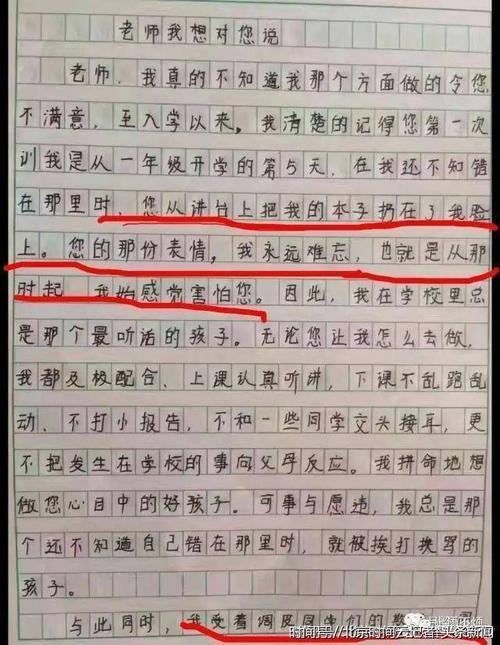 老师我想对您说
老师，我真的不知道我那个方面做的令您
不满意，至入学以来。我清楚的记得您第一次
训我是从一年级开学的第5天，在我还不知错
在那里时，您从讲台上把我的本子扔在了我脸
上。您的那份表情，我永远难忘，也就是从那
时起，我始感觉害怕您。因此，我在学校里总
是那个最听话的孩子。无论您让我怎么去做，
我都及极配合、上课认真听讲，下课不乱跑乱
动、不打小报告，不和一些同学交头接耳，更
不把发生在学校的事向父母反应。我拼命地想
做您心目中的好孩子。可事与愿违，我总是那
个还不知道自己错在那里时，就被挨打挨骂的
孩子。
与此同时，我受着调皮同学们的
时间号/北京时间云记者头条新闻